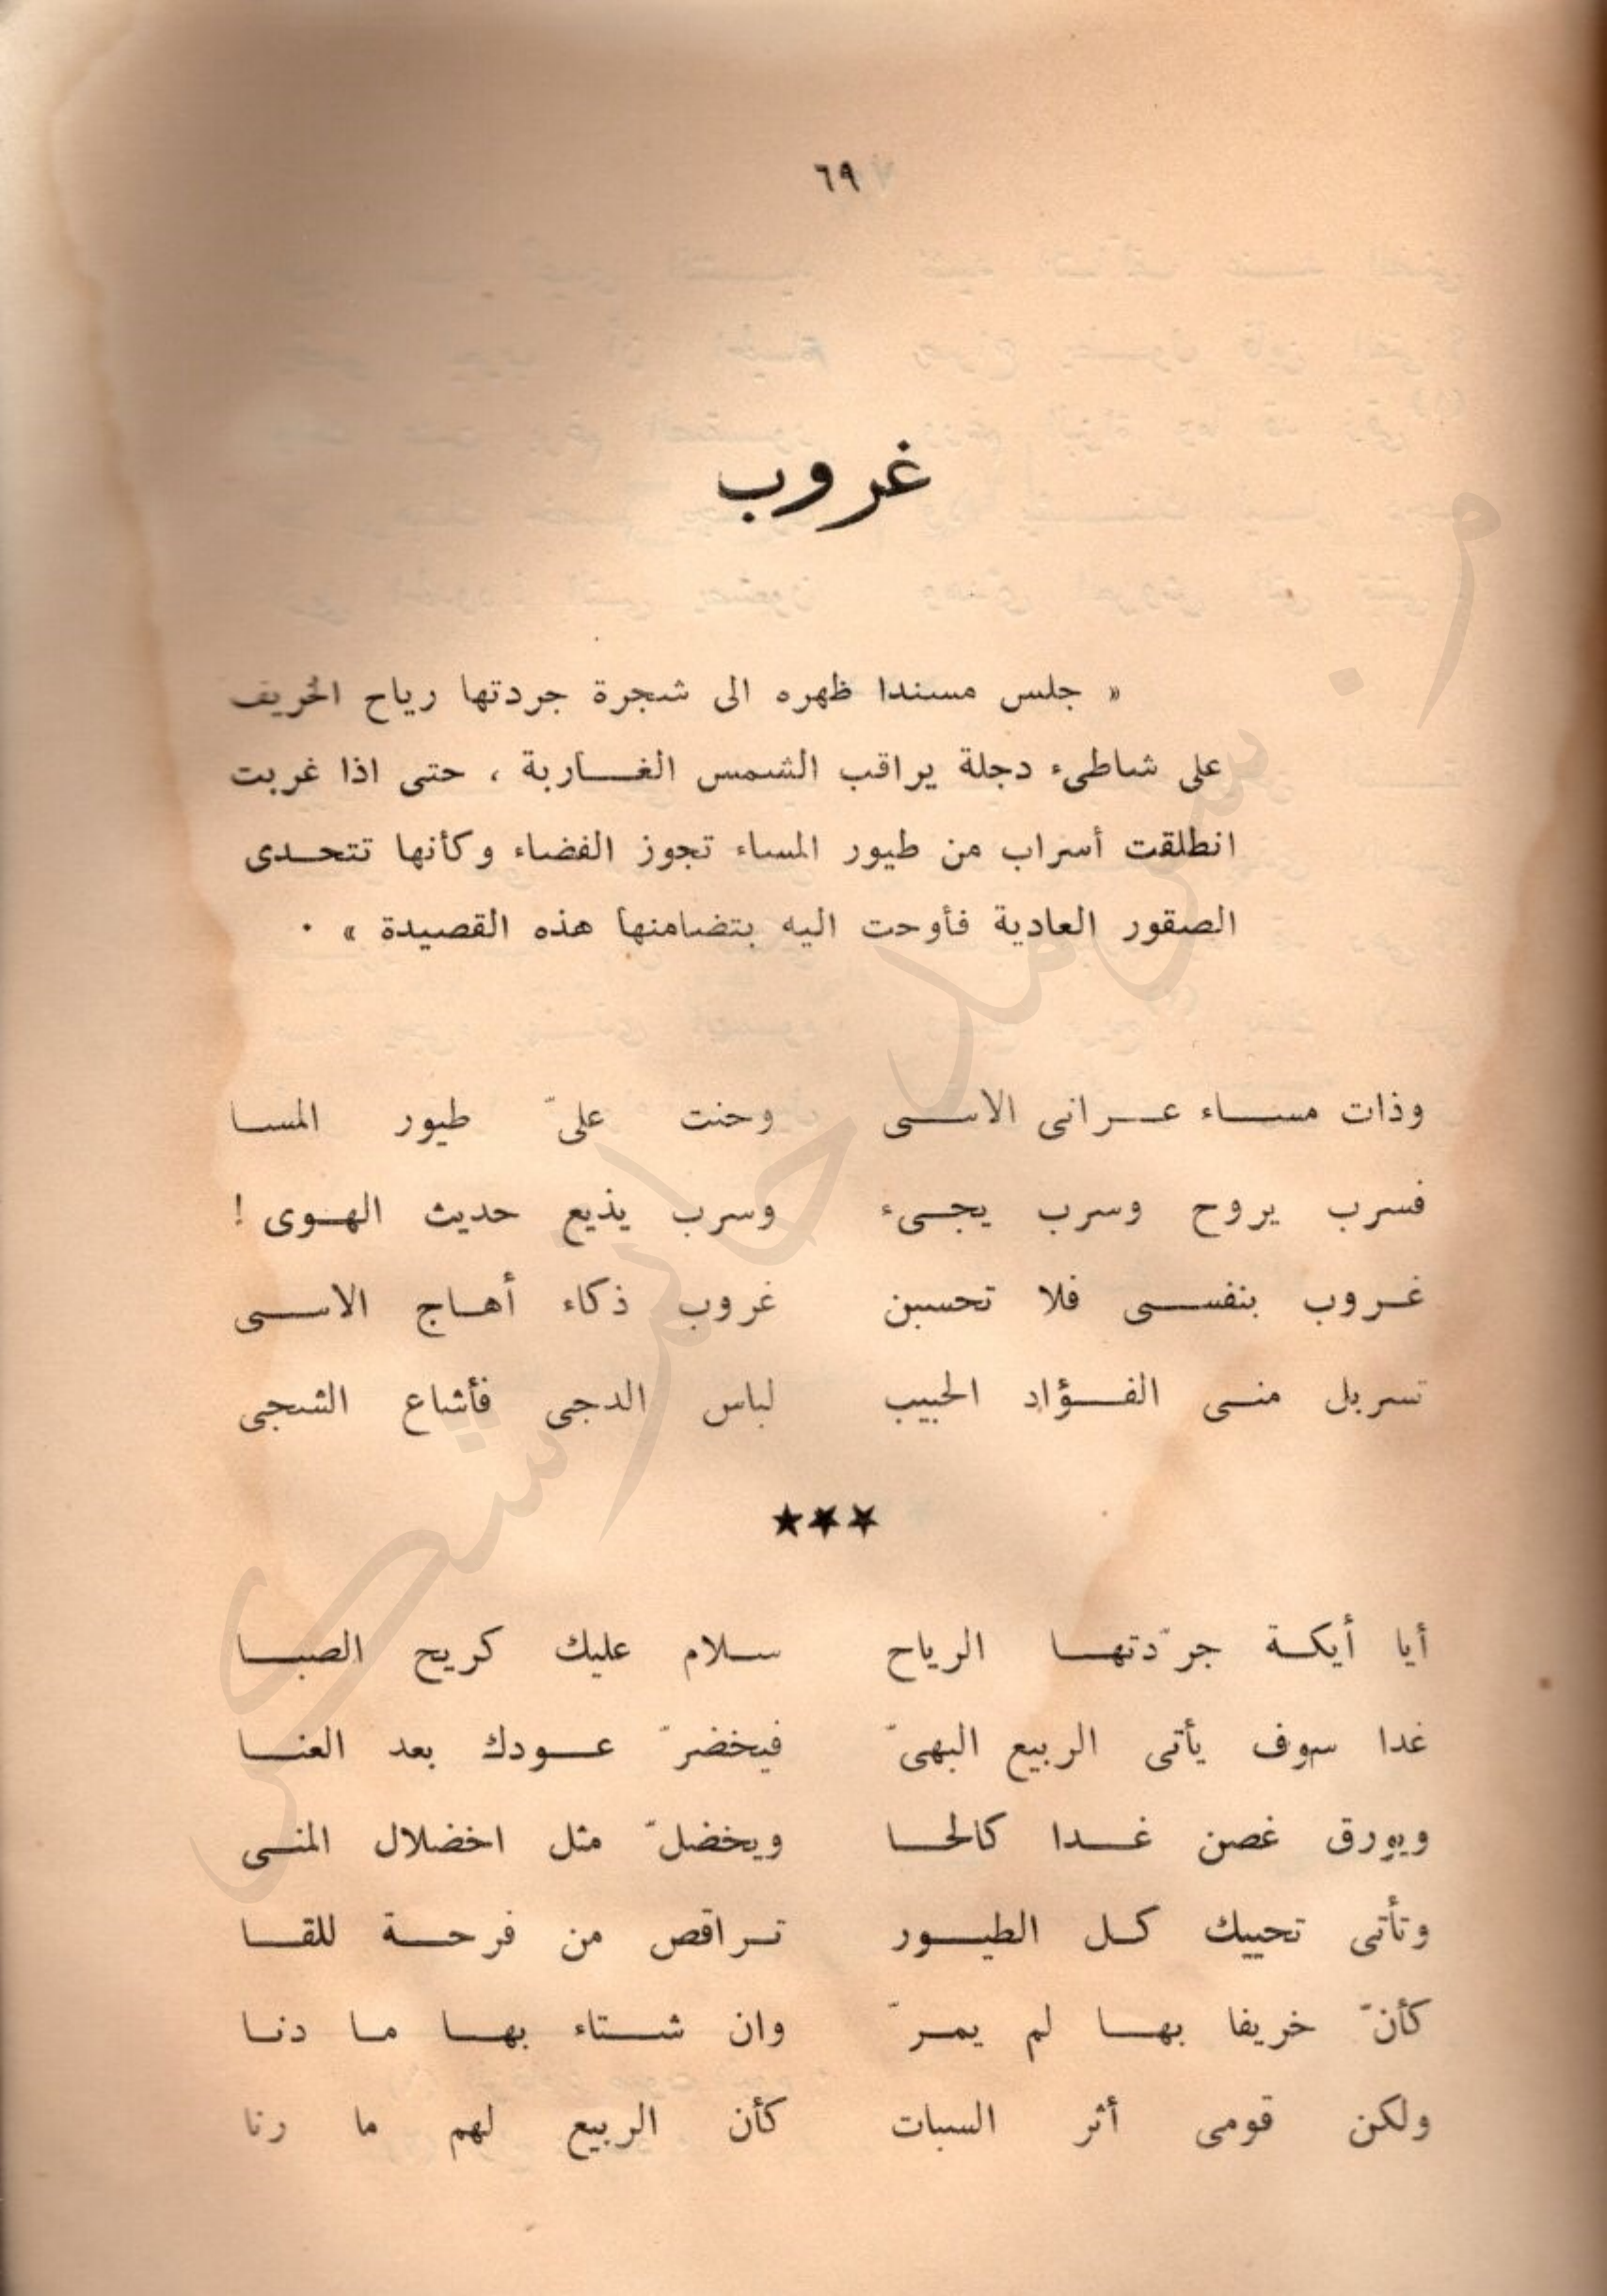 ٦٩
غروب
« جلس مسندا ظهره الى شجرة جردتها رياح الخريف
على شاطىء دجلة يراقب الشمس الغاربة ، حتى اذا غربت
انطلقت أسراب من طيور المساء تجوز الفضاء وكأنها تتحدى
الصقور العادية فأوحت اليه بتضامنها هذه القصيدة » .
وذات مساء عرانى الاسى وحنت علىّ طيور المسا
فسرب يروح وسرب يجىء وسرب يذيع حديث الهوى !
غروب بنفسى فلا تحسبن غروب ذكاء أهاج الاسى
تسربل منى الفؤاد الحبيب لباس الدجى فأشاع الشجى
★★★
أيا أيكة جرّدتها الرياح سلام عليك كريح الصبا
غدا سوف يأتى الربيع البهىّ فيخضرّ عودك بعد العنا
ويورق غصن غدا كالحا ويخضلّ مثل اخضلال المنى
وتأتى تحييك كل الطيور تراقص من فرحة للقا
كأنّ خريفا بها لم يمرّ وان شتاء بها ما دنا
ولكن قومى أثر السبات كأن الربيع لهم ما رنا